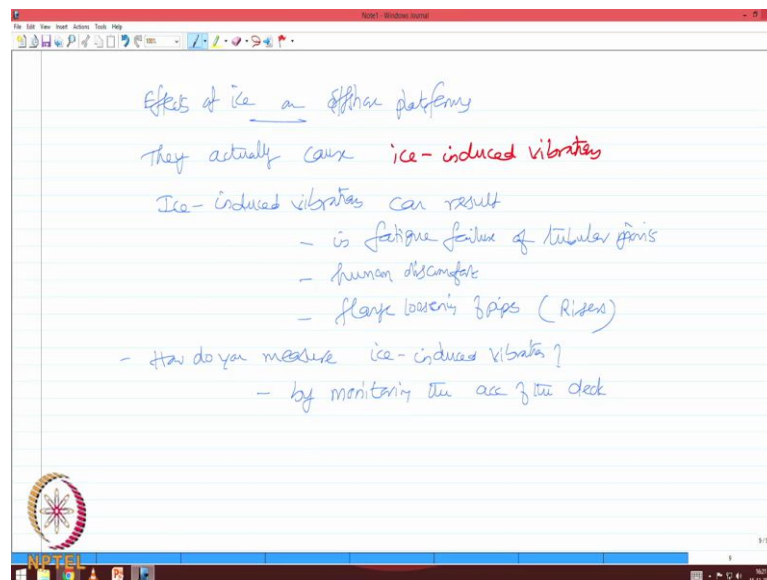 Note1 - Windows Journal
File Edit View Insert Actions Tools Help
Effects of ice on offshore platforms
They actually cause ice-induced vibrations
Ice-induced vibrations can result
- in fatigue failure of tubular joints
- human discomfort
- flange loosening of pipes (Risers)
- How do you measure ice-induced vibration?
- by monitoring the acc of the deck
NPTEL